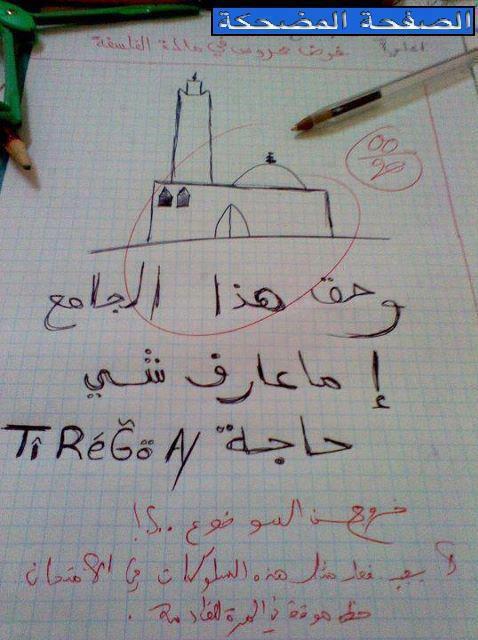 الصفحة المضحكة
فرض محروس في مادة الفلسفة
00
20
وحق هذا الجامع
إ ماعارف شي
حاجة TîRéGôN
خروج عن الموضوع ..؟!
لا يجب فعل مثل هذه السلوكات في الامتحان
حظ موفق في المرة القادمة .